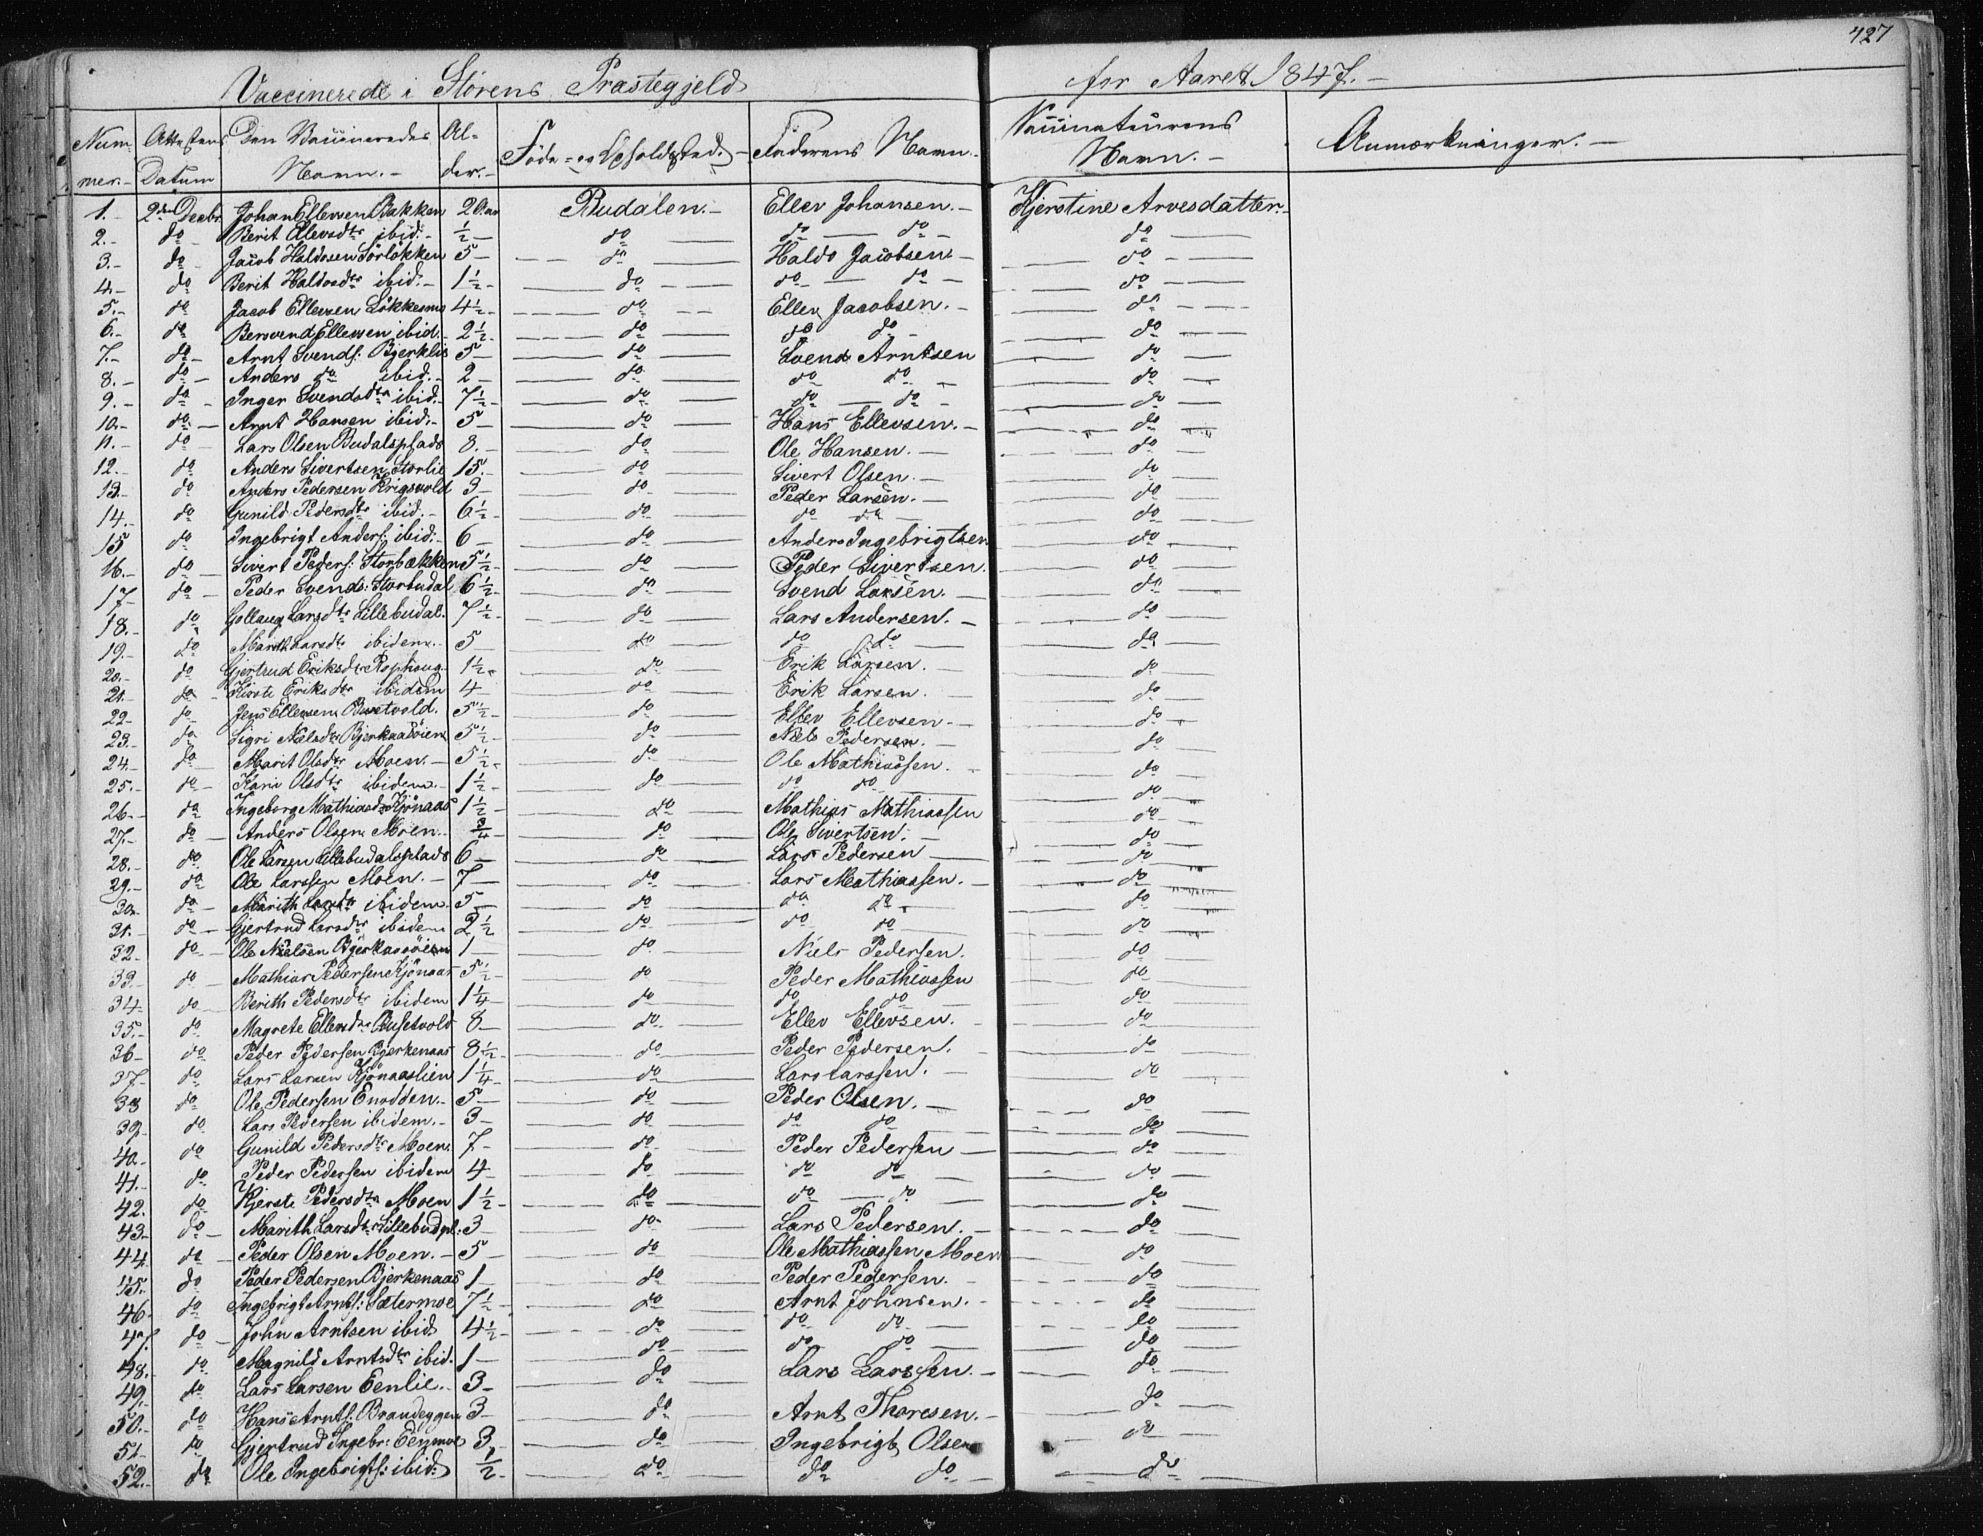 427
Vaccinerede i Størens Præstegjeld for Aaret 1847. –
Nummer. – Attestens Datum Den Vaccineredes Navn. – Alder. – Føde- og Opholdssted. – Faderens Navn. – Vaccinateurens Navn. – Anmærkninger. –
1. – 2den Decbr. Johan Ellevsen Bakken 2 Aar Budalen. – Ellev Johansen. – Kjerstine Arvesdatter. –
2. – do – Berit Ellevsdtr ibid. – ½ – do do – do – do
3. – do – Jacob Haldosen Sørløkken 5 – do Haldo Jacobsen – do
4. – do Berit Haldosdtr ibid. – 1½ – do do – do – do
5. – do Jacob Ellevsen Løkkesmo 4½ – do Ellev Jacobsen. – do
6. – do Bersvend Ellevsen ibid. – 2½ – do do do – do
7. – do – Arnt Svends: Bjerklie 5 – do Svend Arntsen do
8. – do – Anders do ibid. – 2 – do do do – do
9. – do – Inger Svendsdtr ibid. – 7½ – do do – do – do
10. – do – Arnt Hansen ibid: – 5 – do Hans Ellevsen. – do
11. – do – Lars Olsen Budalsplads 8. – do Ole Hansen. – do
12. – do Anders Sivertsen Storlie 15. – do Sivert Olsen. – do
13. – do Anders Pedersen Krigsvold 3 – do Peder Larsen. – do
14. – do Gunild Pedersdtr ibid. – 6½ – do do do – do
15 do Ingebrigt Anders: ibid: – 6 – do Anders Ingebrigtsen do
16. – do – Sivert Peders: Storbækken 5½ – do Peder Sivertsen. do
17 – do – Peder Svends: Storbudal 6½ – do Svend Larsen. – do
18. – do Gollaug Larsdtr Lillebudal. 7½ – do Lars Andersen. – do
19. – do Marith Larsdtr ibidem. – 5 – do do do – do
20. – do Gjertrud Eriksdtr Rophaug – 1½ – do Erik Larsen. – do
21. – do – Kirsti Eriksdtr ibidem 4 – do Erik Larsen – do
22 – do – Jens Ellevsen Busetvold. 5½ – do Ellev Ellevsen. – do
23. – do Sigri Nielsdtr Bjerkaasøien 5½ – do Niels Pedersen. – do
24. – do – Marit Olsdtr Moen. – 5½ – do Ole Mathiassen. – do
25. – do – Kari Olsdtr ibidem. – 1½ – do do do – do
26. – do Ingeborg Mathiasdtr Kjønaas 1½ – do Mathias Mathiassen do
27. – do – Anders Olsen Moen. – ¾ – do Ole Sivertsen. – do
28. – do Ole Larsen Lillebudalsplads 6 – do Lars Pedersen – do
29. – do Ole Larssen Moen. – 7 – do Lars Mathiassen. – do
30. – do – Marith Larsdtr ibidem. 5 – do do do – do
31. – do – Gjertrud Larsdtr ibidem 2½ do do do – do
32 – do – Ole Nielsen Bjerkaasøien 1 – do Niels Pedersen. do
33. – do – Mathias Pedersen Kjønaas 5½ – do Peder Mathiassen do
34 – do – Berith Pedersdtr ibidem 1¼ – do do do do
35. – do Magrete Ellevsdtr Busetvold 8 – do Ellev Ellevsen. – do
36 – do Peder Pedersen Bjerkenaas 8½ – do Peder Pedersen. – do
37 – do Lars Larsen Kjønaaslien 1¼ – do Lars Larssen. – do
38 do Ole Pedersen Enodden. – 5 – do Peder Olsen. – do
39 – do Lars Pedersen ibidem. – 3 – do do do – do
40. – do Gunild Pedersdtr Moen. 7 – do Peder Pedersen – do
41. – do Peder Pedersen ibidem 4 – do do do – do
42. do Kjersti Pedersdtr Moen 1½ – do do – do – do
43. – do – Marith Larsdtr Lillebudpl: 3 – do Lars Pedersen. – do
44. – do – Peder Olsen Moen. – 5 – do Ole Mathiassen Moen do
45. – do Peder Pedersen Bjerkenaas 1 – do Peder Pedersen. – do
46. – do Ingebrigt Arnts: Sætermoe 7½ – do Arnt Johnsen. – do
47. do – John Arntsen ibid 4½ – do do do – do
48. – do Magnild Arntsdtr ibid. 1 – do do do – do
49. do Lars Larsen Eenlie. – 3 – do Lars Larssen. – do
50. – do Hans Arnts: Brandeggen 3 – do Arnt Thoresen. – do
51 – do Gjertrud Ingebr: Eenmoe 3, do Ingebrigt Olsen do
52. – do Ole Ingebrigts: ibid: ½ – do do do – do